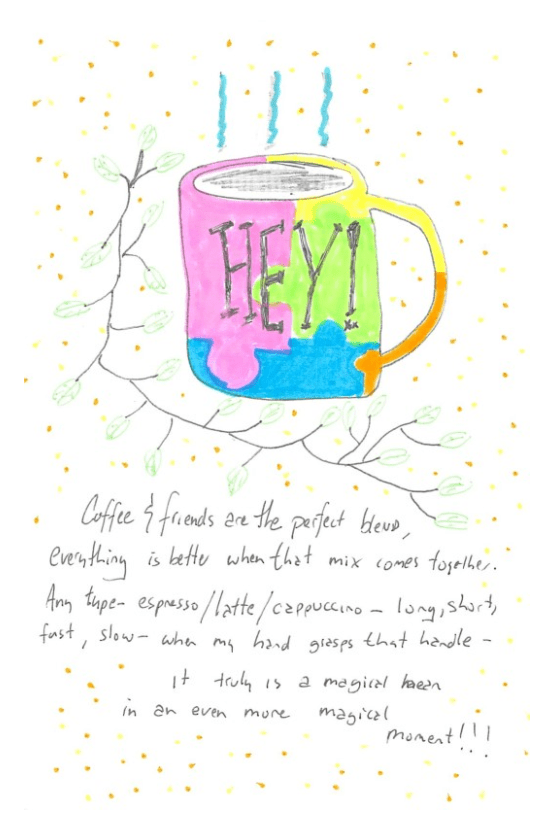 HEY!
Coffee & friends are the perfect blend,
everything is better when that mix comes together.
Any type- espresso/latte/cappuccino - long, short,
fast, slow- when my hand grasps that handle -
it truly is a magical bean
in an even more magical
moment!!!